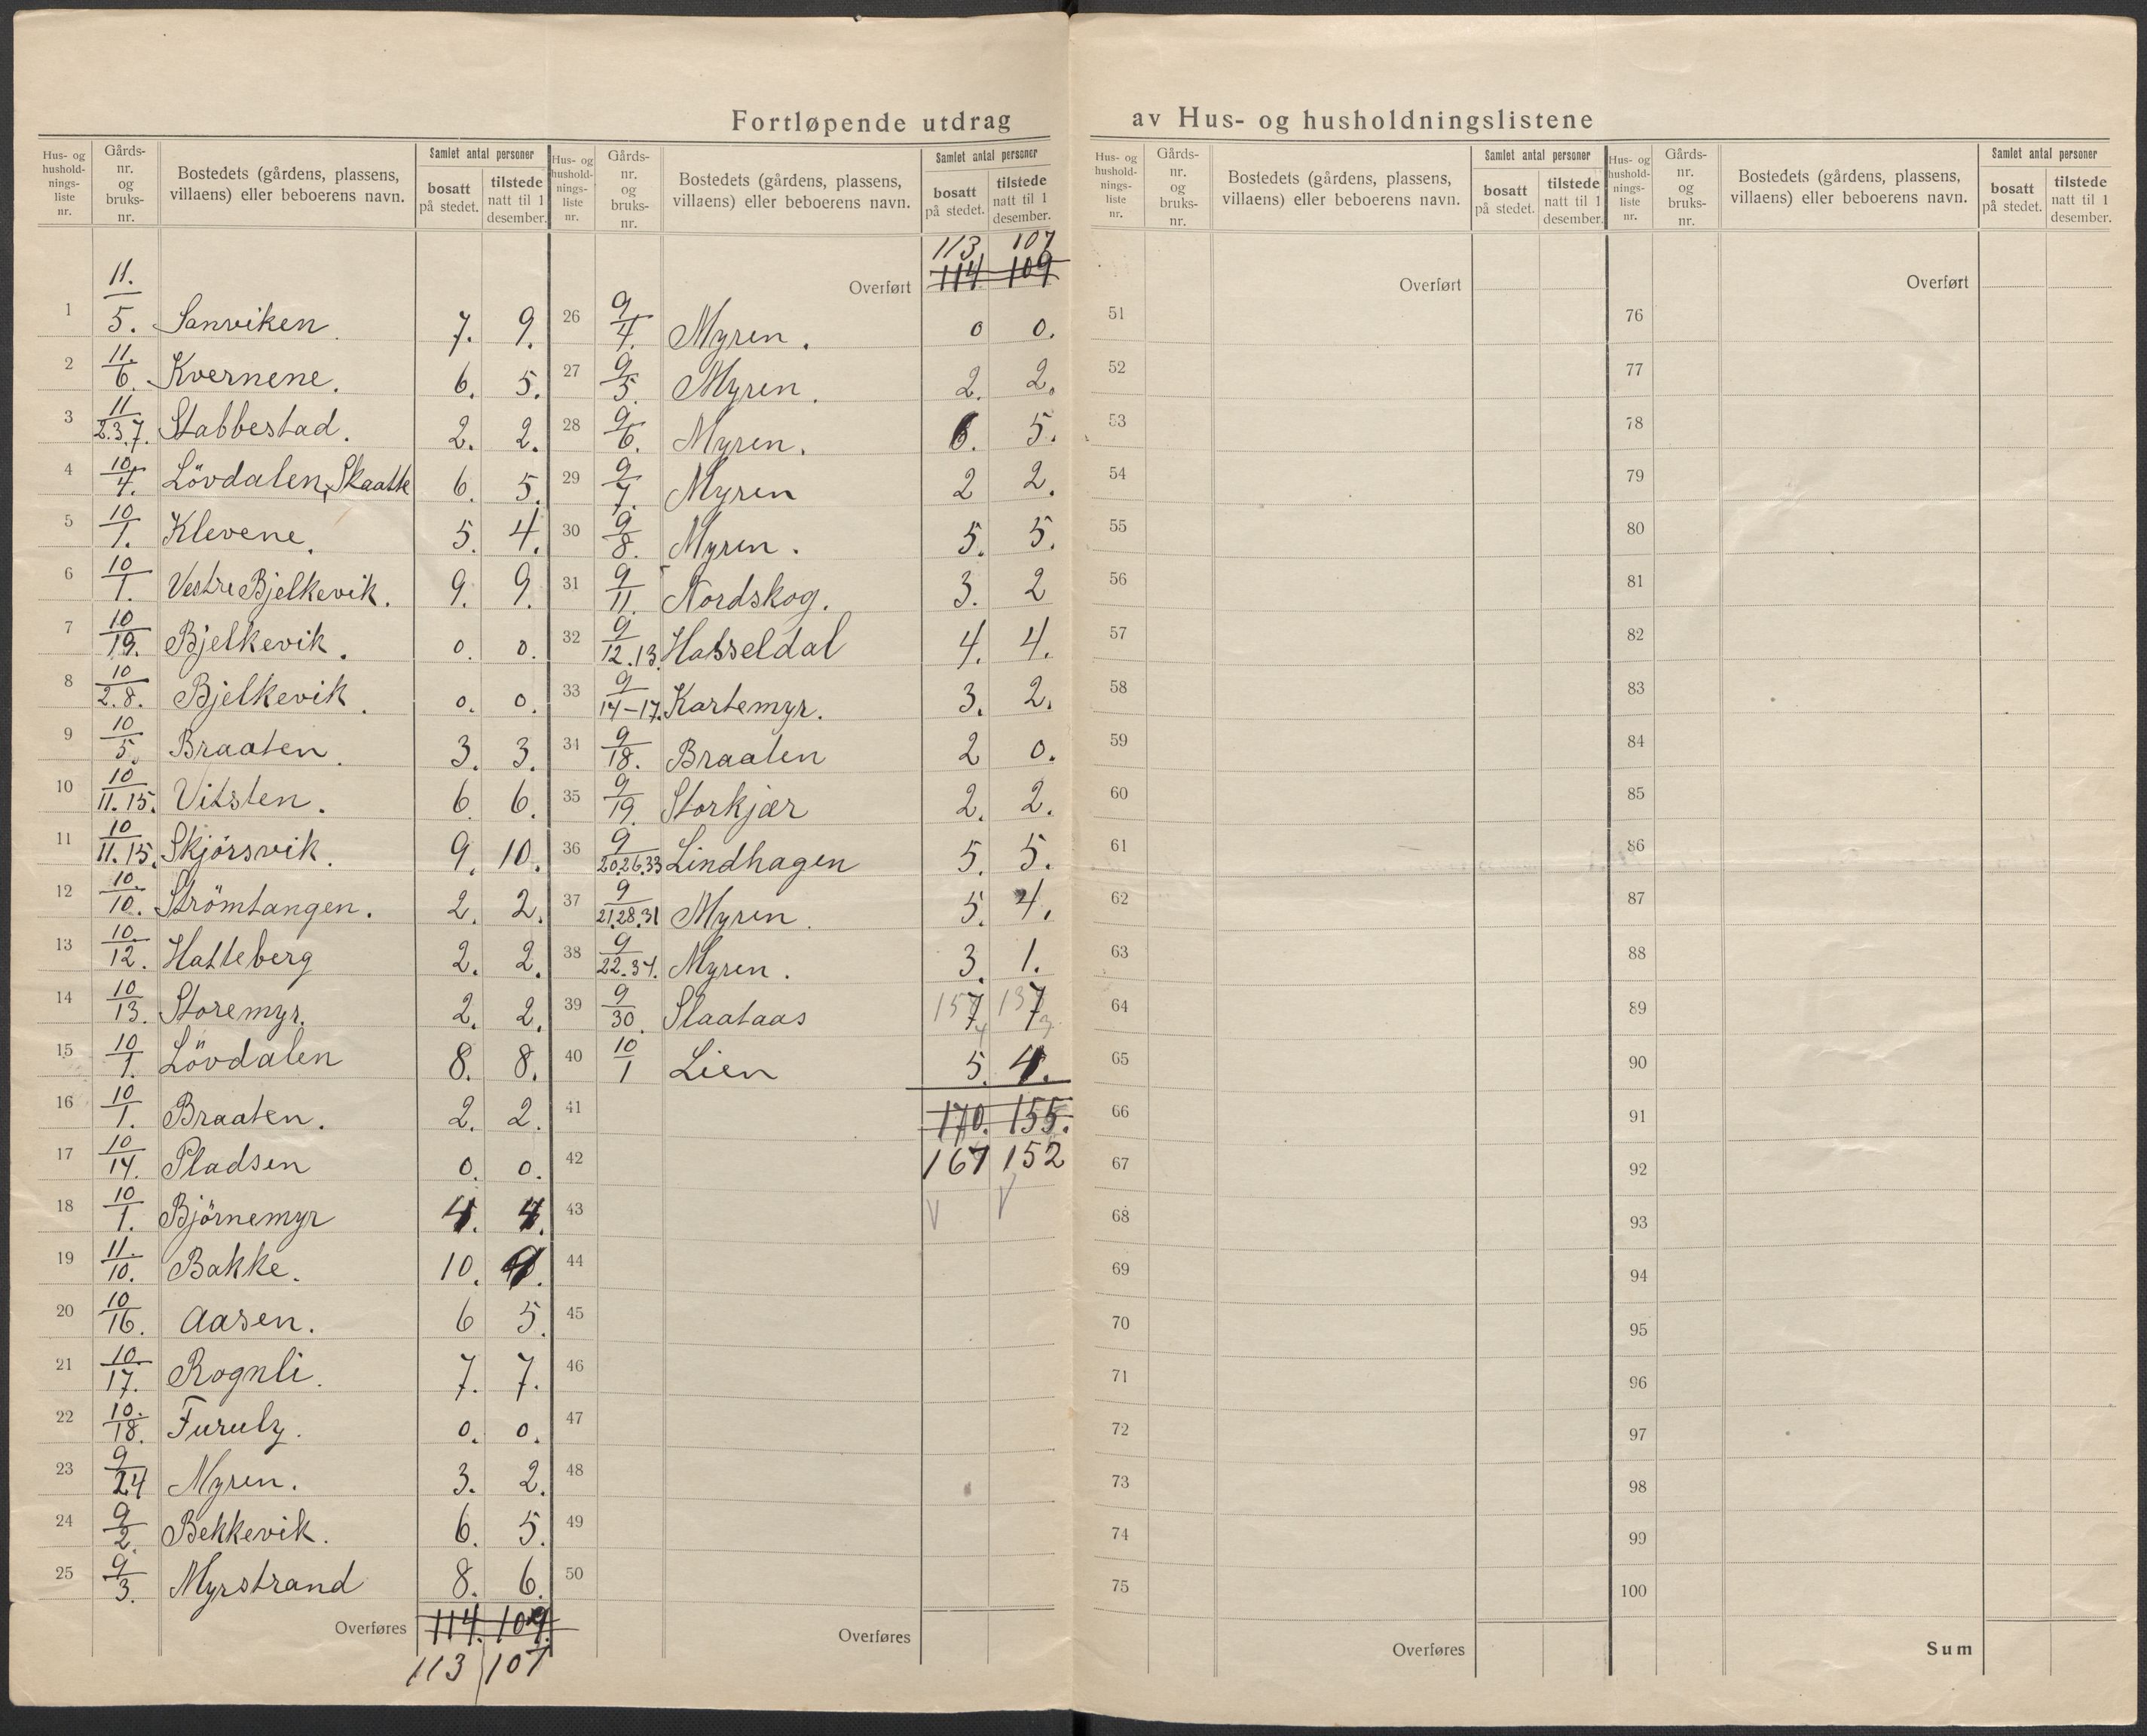 Fortløpende utdrag av Hus- og husholdningslistene
Hus- og hushold-nings-liste nr. Gårds-nr. og bruks-nr. Bostedets (gårdens, plassens, villaens) eller beboerens navn. Samlet antal personer bosatt på stedet. tilstede natt til 1 desember.
1 11./5. Sanviken. 7. 9.
2 11./6. Kvernene. 6. 5.
3 11/2.3.7. Stabbestad. 2. 2.
4 10./4. Lövdalen, Skaatte 6. 5.
5 10/1. Klevene. 5. 4.
6 10/1. Vestre Bjelkevik. 9. 9.
7 10/19. Bjelkevik. 0. 0.
8 10/2.8. Bjelkevik. 0. 0.
9 10/5. Braaten. 3. 3.
10 10/11.15. Vitsten. 6. 6.
11 10/11.15. Skjörsvik. 9. 10.
12 10./10. Strömtangen. 2. 2.
13 10./12. Hatteberg 2. 2.
14 10/13. Storemyr. 2. 2.
15 10/1. Lövdalen 8. 8.
16 10/1. Braaten. 2. 2.
17 10/14. Pladsen 0. 0.
18 10/1. Björnemyr 4. 4.
19 11./10. Bakke. 10. 9.
20 10/16. Aasen. 6 5.
21 10./17. Rognli. 7. 7.
22 10./18. Furuly. 0. 0.
23 9/24 Myren. 3. 2.
24 9/2. Bekkevik. 6. 5.
25 9/3. Myrstrand 8. 6.
Overføres 114. 109.
113 107
Hus- og hushold-nings-liste nr. Gårds-nr. og bruks-nr. Bostedets (gårdens, plassens, villaens) eller beboerens navn. Samlet antal personer bosatt på stedet. tilstede natt til 1 desember.
113 107
Overført 114 109
26 9/4. Myren. 0 0.
27 9/5. Myren. 2. 2.
28 9/6. Myren. 6. 5.
29 9/7. Myren 2 2.
30 9/8. Myren. 5. 5.
31 9/11. Nordskog. 3. 2
32 9/12.13. Hasseldal 4. 4.
33 9/14-17. Kartemyr. 3. 2.
34 9/18. Braaten 2 0.
35 9/19. Storkjær 2. 2.
36 9/20.26.33 Lindhagen 5. 5.
37 9/21.28.31 Myren. 5. 4.
38 9/22.34. Myren. 3. 1.
39 9/30. Slaataas 157 7 137 7
40 10/1 Lien 5. 4.
41 170. 155.
42 167 152
43 V V
44
45
46
47
48
49
50
Overføres
Hus- og hushold-nings-liste nr. Gårds-nr. og bruks-nr. Bostedets (gårdens, plassens, villaens) eller beboerens navn. Samlet antal personer bosatt på stedet. tilstede natt til 1 desember.
Overført
51
52
53
54
55
56
57
58
59
60
61
62
63
64
65
66
67
68
69
70
71
72
73
74
75
Overføres
Hus- og hushold-nings-liste nr. Gårds-nr. og bruks-nr. Bostedets (gårdens, plassens, villaens) eller beboerens navn. Samlet antal personer bosatt på stedet. tilstede natt til 1 desember.
Overført
76
77
78
79
80
81
82
83
84
85
86
87
88
89
90
91
92
93
94
95
96
97
98
99
100
Sum